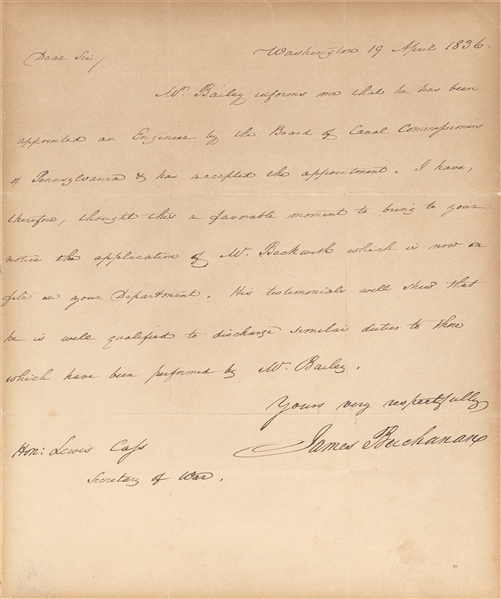 Washington 19 April 1836.
Dear Sir/
Mr. Bailey informs me that he has been
appointed an Engineer by the Board of Canal Commissioners
of Pennsylvania & has accepted the appointment. I have,
therefore, thought this a favorable moment to bring to your
notice the application of Mr. Beckwith which is now on
file in your Department. His testimonials will shew that
he is well qualified to discharge similar duties to those
which have been performed by Mr. Bailey.
Yours very respectfully
James Buchanan
Hon: Lewis Cass
Secretary of War.